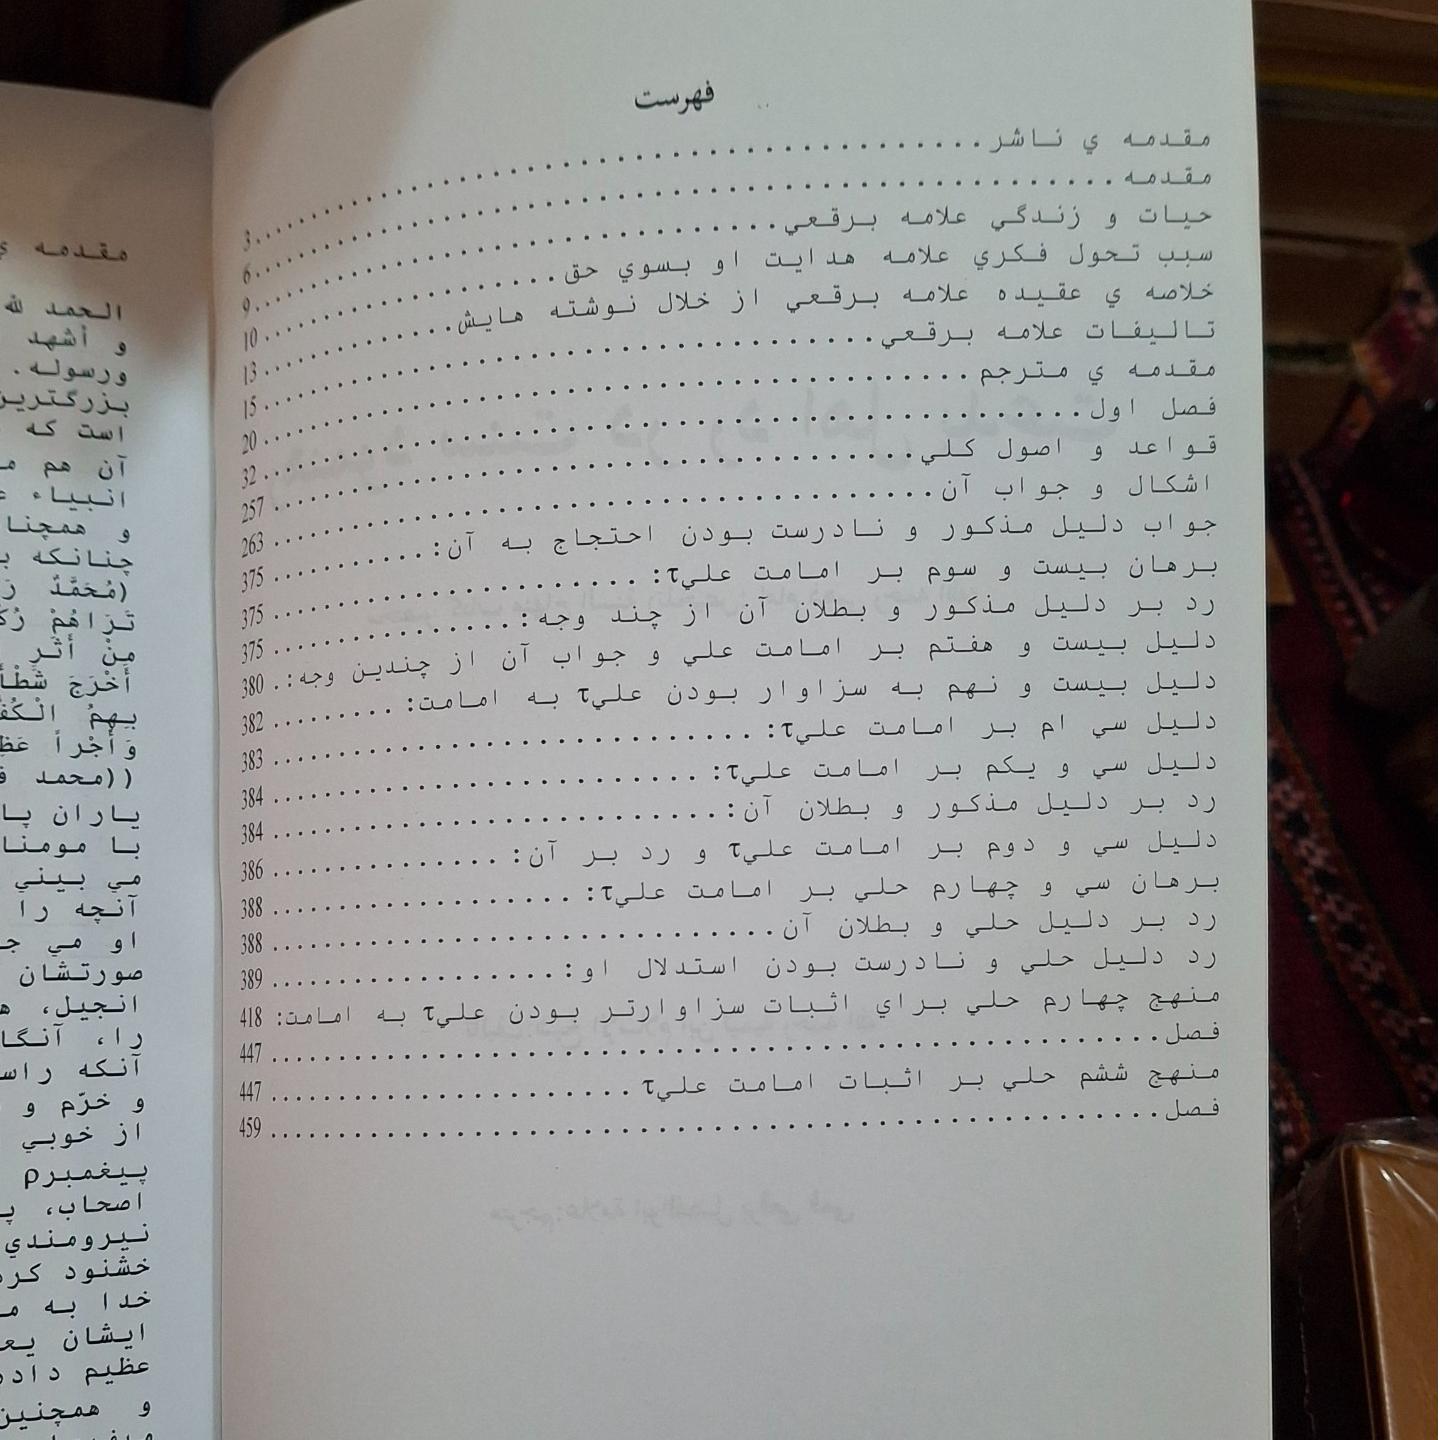 فهرست
مقدمه ي ناشر 3
مقدمه 6
حيات و زندگي علامه برقعي 9
سبب تحول فكري علامه هدايت او بسوي حق 10
خلاصه ي عقيده علامه برقعي از خلال نوشته هايش 13
تاليفات علامه برقعي 15
مقدمه ي مترجم 20
فصل اول 32
قواعد و اصول كلي 257
اشكال و جواب آن 263
جواب دليل مذكور و نادرست بودن احتجاج به آن: 375
برهان بيست و سوم بر امامت عليτ: 375
رد بر دليل مذكور و بطلان آن از چند وجه: 375
دليل بيست و هفتم بر امامت علي و جواب آن از چندين وجه: 380
دليل بيست و نهم به سزاوار بودن عليτ به امامت: 382
دليل سي ام بر امامت عليτ: 383
دليل سي و يكم بر امامت عليτ: 384
رد بر دليل مذكور و بطلان آن: 384
دليل سي و دوم بر امامت عليτ و رد بر آن: 386
برهان سي و چهارم حلي بر امامت عليτ: 388
رد بر دليل حلي و بطلان آن 388
رد دليل حلي و نادرست بودن استدلال او: 389
منهج چهارم حلي براي اثبات سزاوارتر بودن عليτ به امامت: 418
فصل 447
منهج ششم حلي بر اثبات امامت عليτ 447
فصل 459
مقدمه
الحمد لله
و أشهد
ورسوله.
بزرگترين
است كه
آن هم
انبياء
و همچنا
چنانكه
(مُحَمَّدٌ
تَرَاهُمْ
مِنْ أَثَرِ
أَخْرَجَ
بِهِمُ
وَأَجْراً
((محمد
ياران
با
مي بيني
آنچه را
او مي
صورتشان
انجيل،
را،
آنكه
و خرّم و
از خوبي
پيغمبرρ
اصحاب،
نيرومندي
خشنود
خدا به
ايشان
عظيم
و همچنين